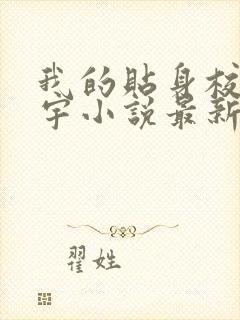 我的貼身校
宇小說最新
翟姓